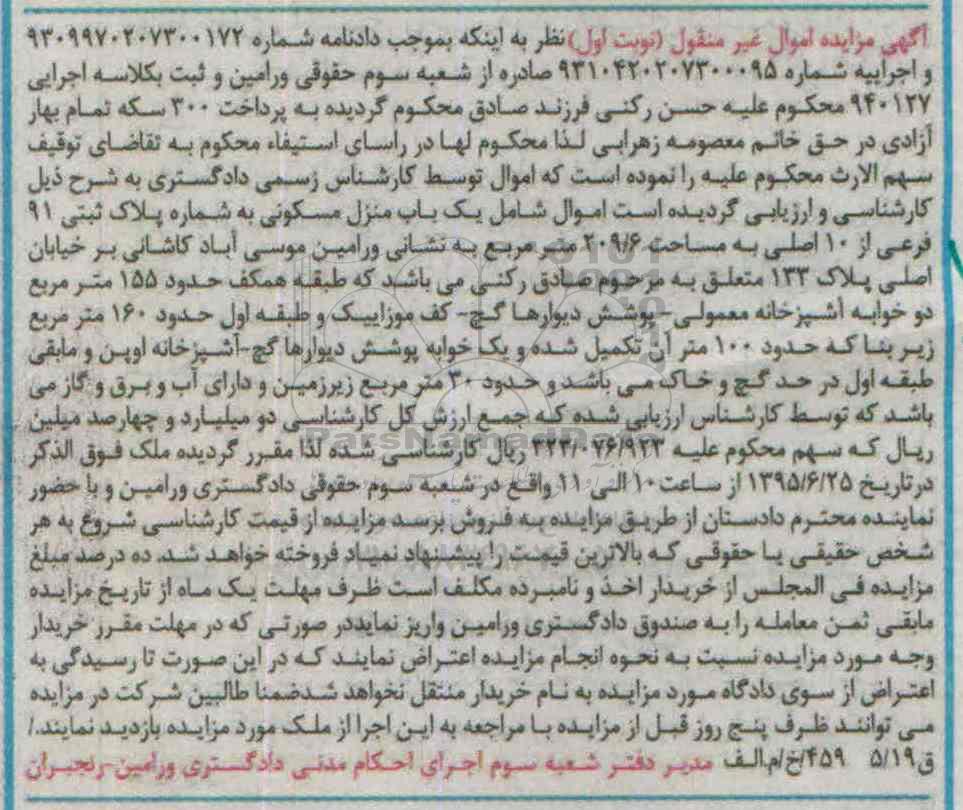 آگهی مزایده اموال غیر منقول (نوبت اول) نظر به اینکه بموجب دادنامه شماره ۹۳۰۹۹۷۰۲۰۷۳۰۰۱۷۲
و اجراییه شماره ۹۳۱۰۴۲۰۲۰۷۳۰۰۰۹۵ صادره از شعبه سوم حقوقی ورامین و ثبت بکلاسه اجرایی
۹۴۰۱۲۷ محکوم علیه حسن رکنی فرزند صادق محکوم گردیده به پرداخت ۳۰۰ سکه تمام بهار
آزادی در حق خانم معصومه زهرابی لذا محکوم لها در راسای استیفاء محکوم به تقاضای توقیف
سهم الارث محکوم علیه را نموده است که اموال توسط کارشناس رسمی دادگستری به شرح ذیل
کارشناسی و ارزیابی گردیده است اموال شامل یک باب منزل مسکونی به شماره پلاک ثبتی ۹۱
فرعی از ۱۰ اصلی به مساحت ۲۰۹/۶ متر مربع به نشانی ورامین موسی آباد کاشانی بر خیابان
اصلی پلاک ۱۳۳ متعلق به مرحوم صادق رکنی می باشد که طبقه همکف حدود ۱۵۵ متر مربع
دو خوابه آشپزخانه معمولی- پوشش دیوارها گچ- کف موزاییک و طبقه اول حدود ۱۶۰ متر مربع
زیر بنا که حدود ۱۰۰ متر آن تکمیل شده و یک خوابه پوشش دیوارها گچ-آشپزخانه اوپن و مابقی
طبقه اول در حد گچ و خاک می باشد و حدود ۳۰ متر مربع زیرزمین و دارای آب و برق و گاز می
باشد که توسط کارشناس ارزیابی شده که جمع ارزش کل کارشناسی دو میلیارد و چهارصد میلین
ریال که سهم محکوم علیه ۳۲۳/۰۷۶/۹۲۳ ریال کارشناسی شده لذا مقرر گردیده ملک فوق الذکر
درتاریخ ۱۳۹۵/۶/۲۵ از ساعت ۱۰ الی ۱۱ واقع در شعبه سوم حقوقی دادگستری ورامین و با حضور
نماینده محترم دادستان از طریق مزایده به فروش برسد مزایده از قیمت کارشناسی شروع به هر
شخص حقیقی یا حقوقی که بالاترین قیمت را پیشنهاد نمیاد فروخته خواهد شد. ده درصد مبلغ
مزایده فی المجلس از خریدار اخذ و نامبرده مکلف است ظرف مهلت یک ماه از تاریخ مزایده
مابقی ثمن معامله را به صندوق دادگستری ورامین واریز نمایددر صورتی که در مهلت مقرر خریدار
وجه مورد مزایده نسبت به نحوه انجام مزایده اعتراض نمایند که در این صورت تا رسیدگی به
اعتراض از سوی دادگاه مورد مزایده به نام خریدار منتقل نخواهد شدضمنا طالبین شرکت در مزایده
می توانند ظرف پنج روز قبل از مزایده با مراجعه به این اجرا از ملک مورد مزایده بازدید نمایند./
ق۵/۱۹ ۴۵۹/خ/م.الف مدیر دفتر شعبه سوم اجرای احکام مدنی دادگستری ورامین-رنجبران